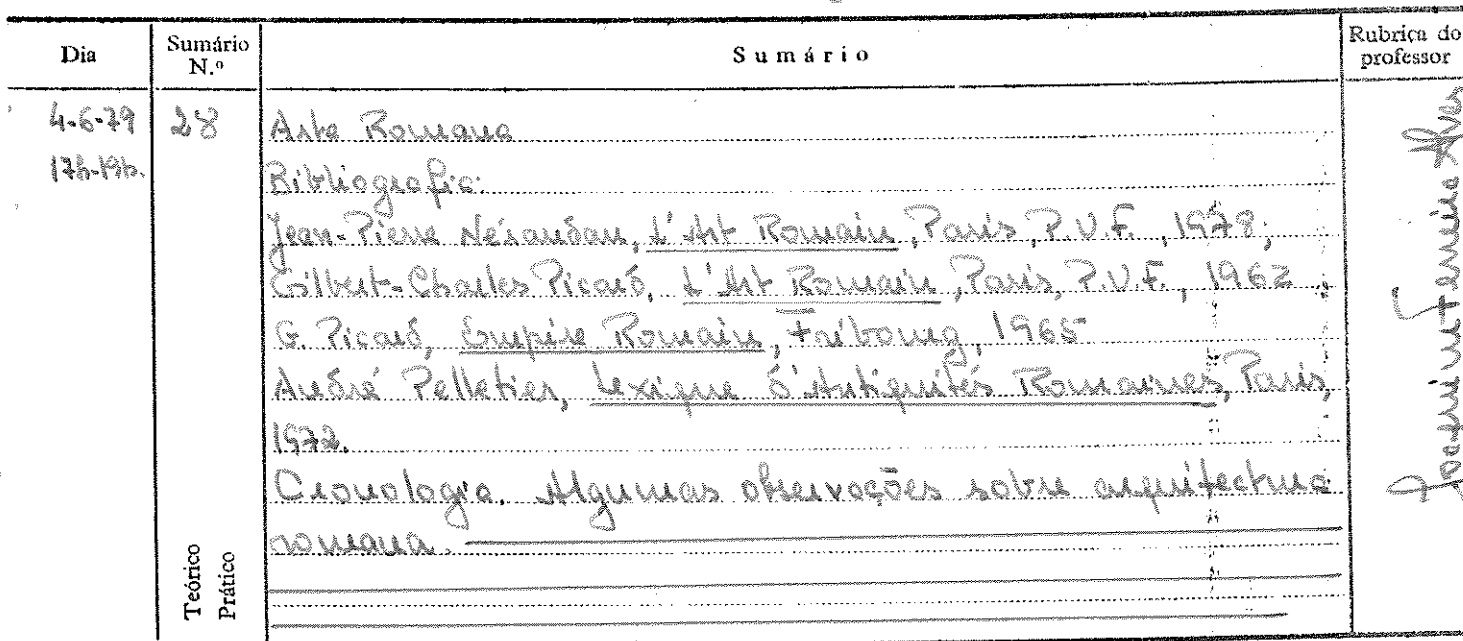 Dia
Sumário N.º
Sumário
Rubrica do professor
4-6-79
28
Arte Romana
17h-19h.
Bibliografia:
Jean-Pierre Néraudau, L'Art Romain, Paris, P.U.F., 1978;
Gilbert-Charles Picard, L'Art Romain, Paris, P.U.F., 1962
G. Picard, Empire Romain, Fribourg, 1965
André Pelletier, Lexique d'Antiquités Romaines, Paris,
1972.
Cronologia. Algumas observações sobre arquitectura
romana.
Teórico
Prático
Joaquim Ferreira Alves